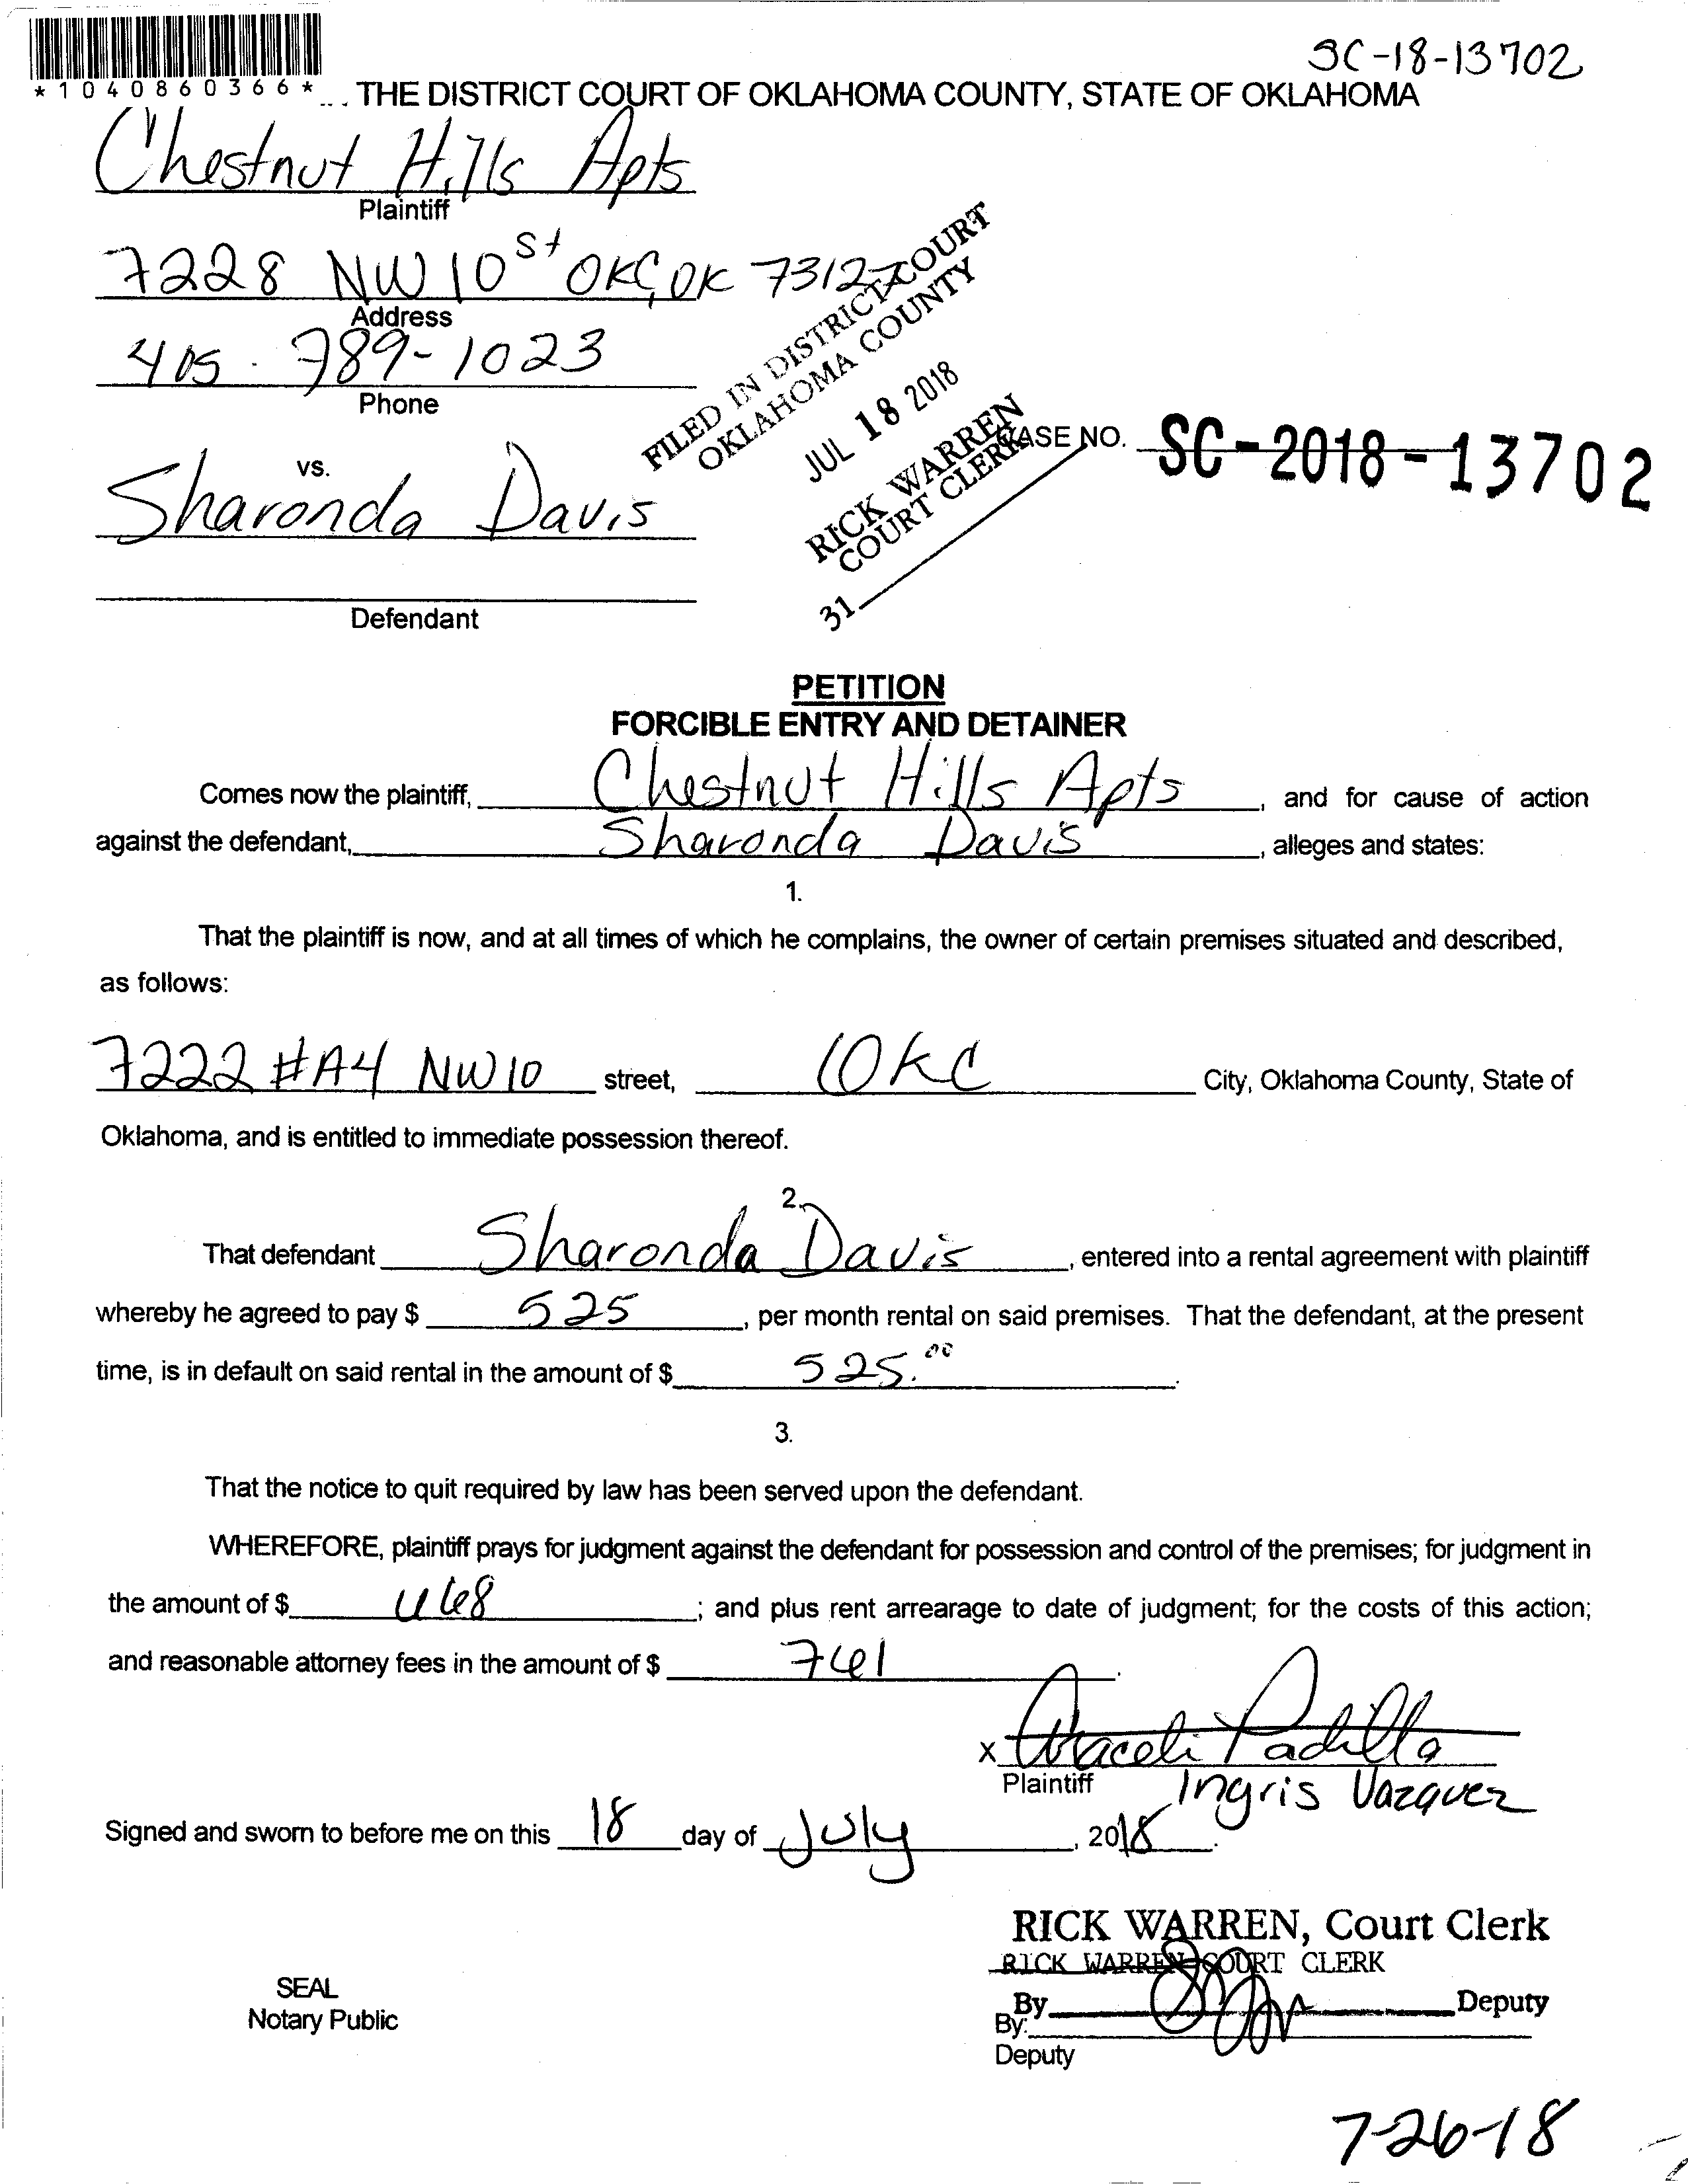 SC-18-13702
*1040860366*
THE DISTRICT COURT OF OKLAHOMA COUNTY, STATE OF OKLAHOMA
Chestnut Hills Apts
Plaintiff
7228 NW 10 St OKC, OK 73127
Address
405-789-1023
Phone
FILED IN DISTRICT COURT
OKLAHOMA COUNTY
JUL 18 2018
RICK WARREN
COURT CLERK
31
CASE NO. SC-2018-13702
vs.
Sharonda Davis
Defendant
PETITION
FORCIBLE ENTRY AND DETAINER
Comes now the plaintiff, Chestnut Hills Apts, and for cause of action
against the defendant, Sharonda Davis, alleges and states:
1.
That the plaintiff is now, and at all times of which he complains, the owner of certain premises situated and described,
as follows:
7222 #A4 NW 10 street, OKC City, Oklahoma County, State of
Oklahoma, and is entitled to immediate possession thereof.
2.
That defendant Sharonda Davis, entered into a rental agreement with plaintiff
whereby he agreed to pay $ 525, per month rental on said premises. That the defendant, at the present
time, is in default on said rental in the amount of $ 525.00.
3.
That the notice to quit required by law has been served upon the defendant.
WHEREFORE, plaintiff prays for judgment against the defendant for possession and control of the premises; for judgment in
the amount of $; and plus rent arrearage to date of judgment; for the costs of this action;
and reasonable attorney fees in the amount of $ 761.
x Araceli Padilla
Plaintiff Ingris Vazquez
Signed and sworn to before me on this 18 day of July, 2018.
RICK WARREN, Court Clerk
RICK WARREN COURT CLERK
SEAL
Notary Public
By Deputy
By:
Deputy
7-26-18